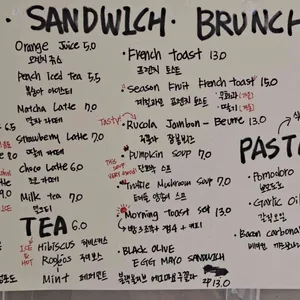 · SANDWICH · BRUNCH
Orange Juice 5.0
오렌지 쥬스
Peach Iced Tea 5.5
복숭아 아이스티
Matcha Latte 7.0
말차 라떼
Strawberry Latte 7.0
딸기 라떼
Choco Latte 6.0
초코 라떼
Milk tea 7.0
밀크티
TEA 6.0
ICE & HOT
Hibiscus 히비스커스
Rooibos 루이보스
Mint 페퍼민트
· French toast 13.0
프렌치 토스트
· Season Fruit French toast 15.0
제철과일 프렌치 토스트
Tasty
· Rucola Jambon-Beurre 13.0
루꼴라 잠봉뵈르
THIS SOUP VERY
· Pumpkin Soup 7.0
단호박 스프
· Truffle Mushroom Soup 7.0
트러플 양송이 스프
· Morning Toast set 13.0
· BLACK OLIVE
EGG MAYO SANDWICH
블랙올리브 에그마요 샌드위치
13.0
PASTA
· Pomodoro
뽀모도로
· Garlic Oil
갈릭오일
· Bacon carbonara
베이컨 까르보나라